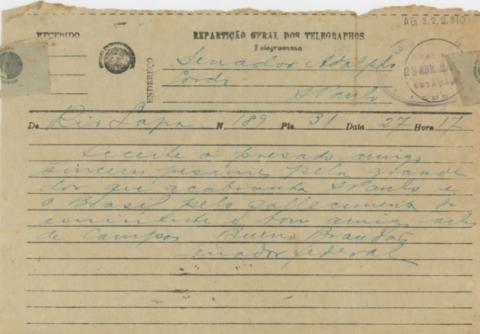 AG 2.2.2.810
RECEBIDO
REPARTIÇÃO GERAL DOS TELEGRAPHOS
Telegramma
ENDEREÇO
Senador Adolpho
Gordo
S Paulo
De Rio Lapa N. 189 Pls. 31 Data 27 Hora 17
Acceite o presado amigo
sinceros pesames pela grande
dor que acabrunha S Paulo e
o Brasil pelo fallecimento do
eminente e bom amigo Carlos
de Campos Bueno Brandão
enador federal